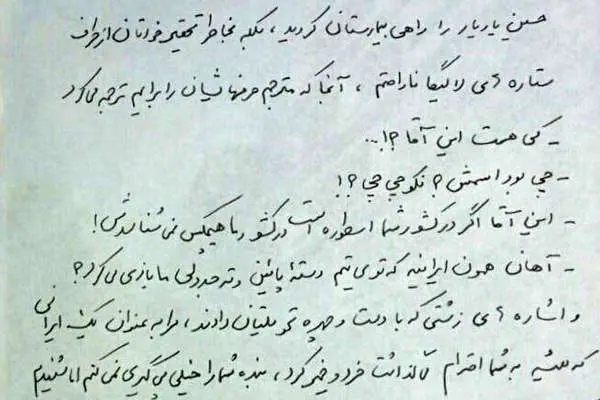 حسین یاریار را راهی بیمارستان کردید، بلکه بخاطر تحقیر خودتان از طرف
ستاره های لالیگا ناراحتم، آنجا که مترجم حرفهاشیان را برایم ترجمه می کرد
- کی هست این آقا؟!...
- چی بود اسمش؟ نکو چی چی؟!
- این آقا اگر در کشور شما اسطوره است در کشور ما هیچکس نمی شناسدش!
- آهان همون ایرانیه که توی تیم دستهٔ پائین و ته جدولی ما بازی می کرد؟
و اشاره های زشتی که با دست و چهره تحویلتان دادند، مرا به عنوان یک ایرانی
که همیشه به شما احترام گذاشت خرد و خمیر کرد، بنده شما را خیلی پیگیری نمی کنم اما شنیدم